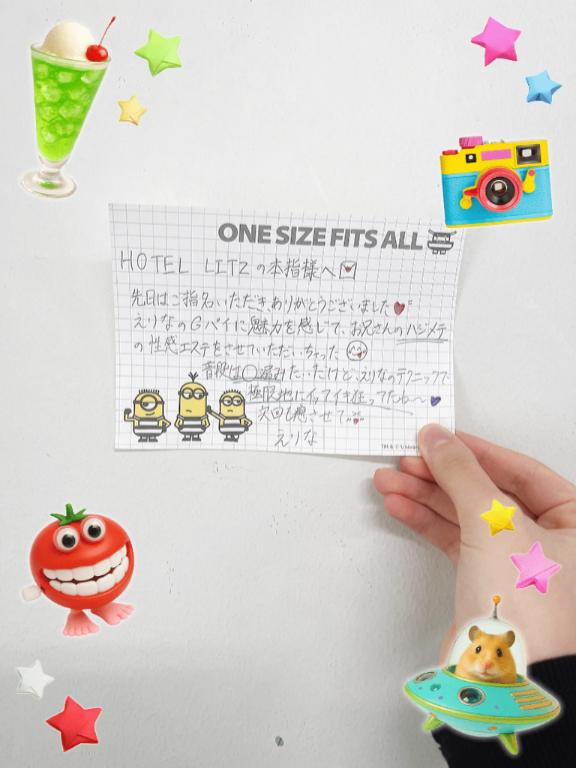 ONE SIZE FITS ALL
HOTEL LITZの本指様へ
先日はご指名いただきありがとうございました
えりなのGパイに魅力を感じて、お兄さんのハジメテ
の性感エステをさせていただいちゃった
普段は〇屋みたいだけど、えりなのテクニックで
極限地にイッてイキ狂ってたね〜
次回も癒させて
えりな